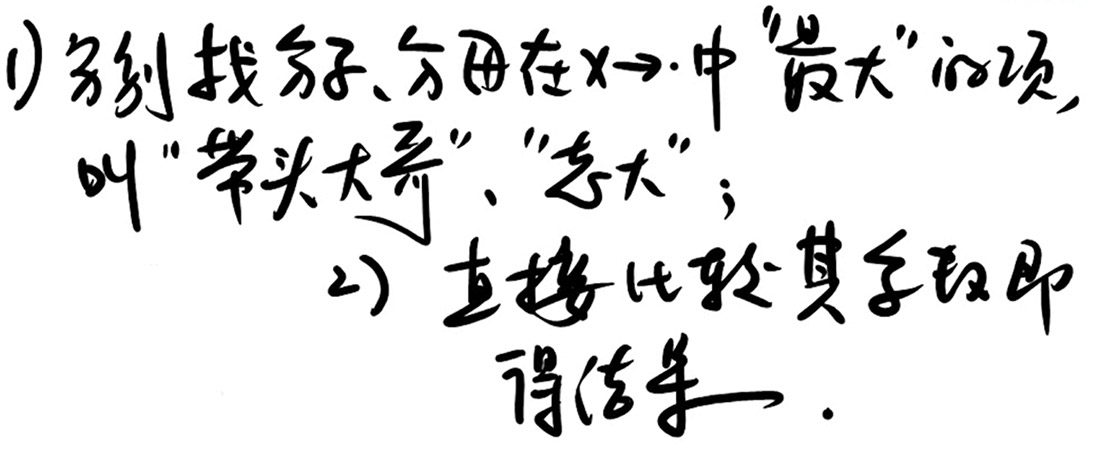 1) 分别找分子、分母在x→·中“最大”的项,
叫“带头大哥”、“老大”;
2) 直接比较其系数即
得结果.